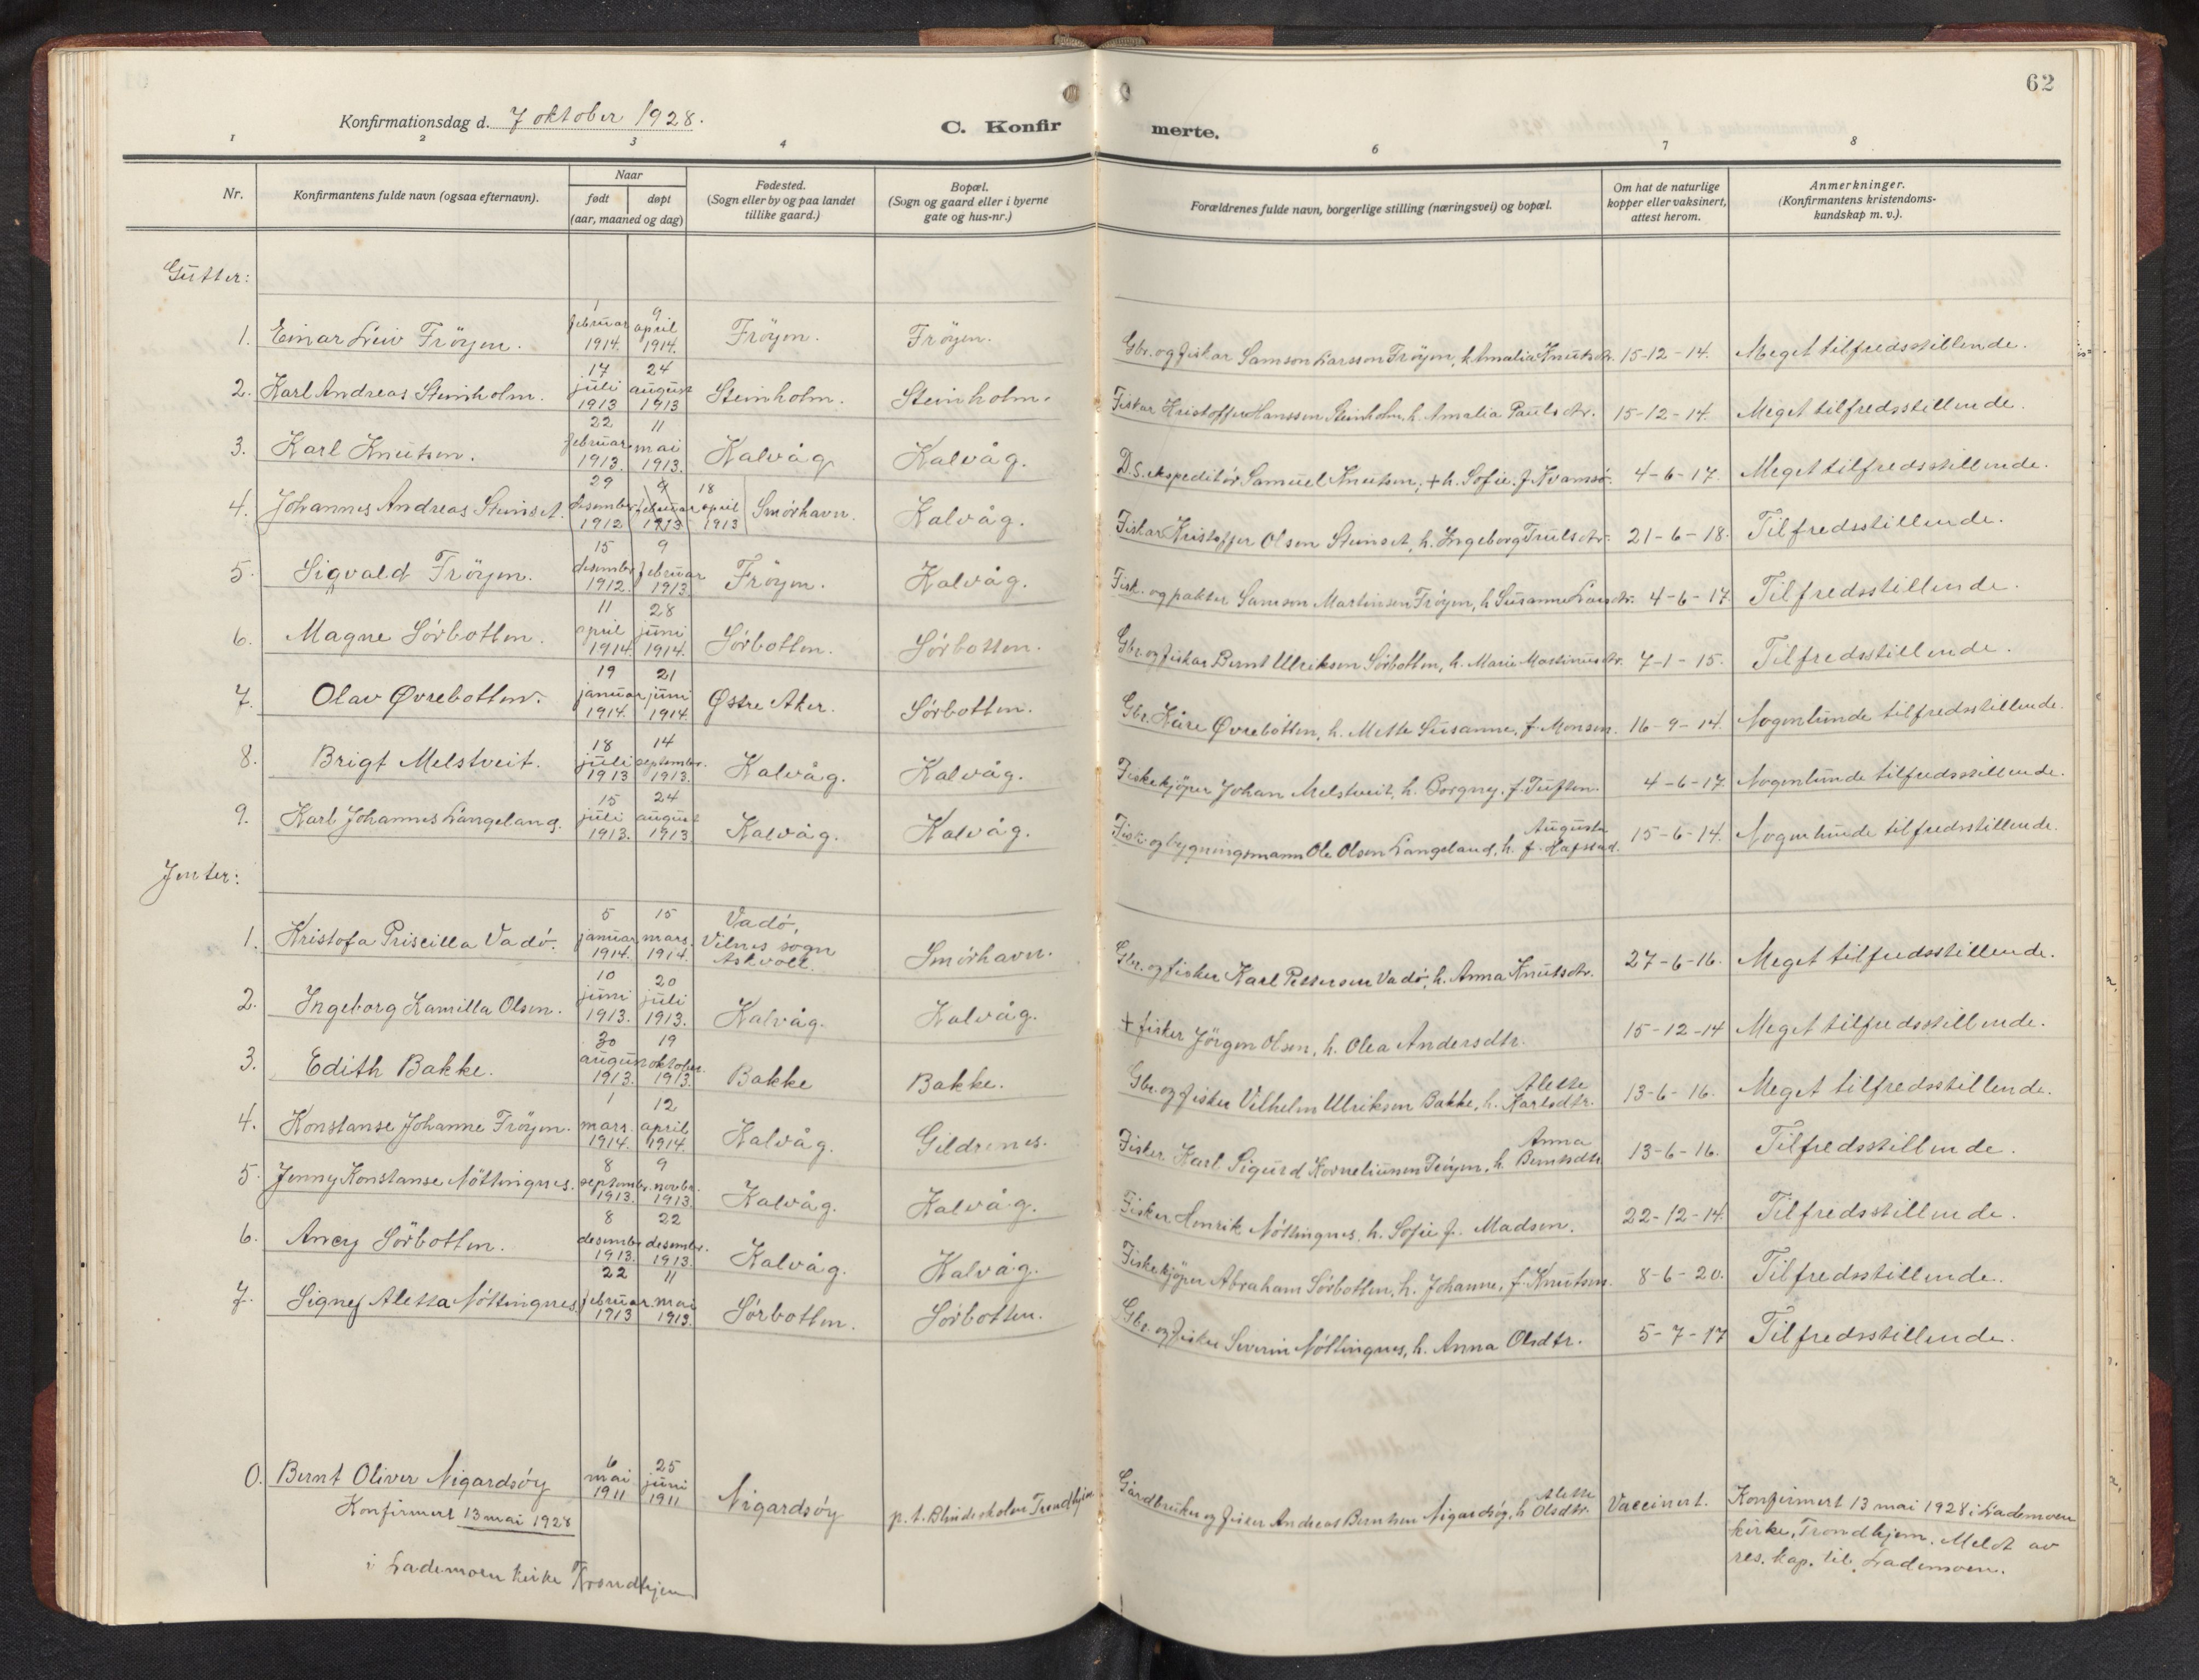 62
Konfirmationsdag d. 7 oktober 1928.
C. Konfirmerte.
1 2 3 4 6 7 8
Nr. Konfirmantens fulde navn (ogsaa efternavn). Naar født døpt (aar, maaned og dag) Fødested. (Sogn eller by og paa landet tillike gaard.) Bopæl. (Sogn og gaard eller i byerne gate og hus-nr.) Forældrenes fulde navn, borgerlige stilling (næringsvei) og bopæl. Om hat de naturlige kopper eller vaksinert, attest herom. Anmerkninger. (Konfirmantens kristendomskundskap m. v.).
Gutter:
1. Einar Leiv Fröyen. 1 februar 1914. 9 april 1914. Fröyen. Fröyen. Gbr. og fiskar Samson Larsson Fröyen, h. Amalia Knutsdtr. 15-12-14. Meget tilfredsstillende.
2. Karl Andreas Steinholm. 17 juli 1913 24 august 1913 Steinholm. Steinholm. Fiskar Kristoffer Hanssen Steinholm, h. Amalia Paulsdtr. 15-12-14. Meget tilfredsstillende.
3. Karl Knutsen. 22 februar 1913. 11 mai 1913. Kalvåg Kalvåg. D.S. ekspeditör Samuel Knutsen, + h. Sofie f. Kvamsö. 4-6-17. Meget tilfredsstillende.
4. Johannes Andreas Steinset. 29 desember 1912 9 februar 1913 18 april 1913 Smörhavn. Kalvåg. Fiskar Kristoffer Olsen Steinset, h. Ingeborg Trulsdtr. 21-6-18. Tilfredsstillende.
5. Sigvald Fröyen. 15 desember 1912. 9 februar 1913. Fröyen. Kalvåg. Fisk. og pakter Samson Martinsen Fröyen, h. Susanne Larsdtr. 4-6-17. Tilfredsstillende.
6. Magne Sörbotten. 11 april 1914. 28 juni 1914. Sörbotten. Sörbotten. Gbr. og fiskar Bernt Ulriksen Sörbotten, h. Marie Martinusdtr. 7-1-15. Tilfredsstillende.
7. Olav Øvrebotten. 19 januar 1914. 21 juni 1914. Østre Aker. Sörbotten. Gbr. Kåre Øvrebotten, h. Mette Susanne, f. Monsen. 16-9-14. Nogenlunde tilfredsstillende.
8. Brigt Melstveit. 18 juli 1913 14 septembr. 1913. Kalvåg. Kalvåg. Fiskekjöper Johan Melstveit, h. Borgny, f. Tuften. 4-6-17. Nogenlunde tilfredsstillende.
9. Karl Johannes Langeland. 15 juli 1913. 24 august 1913 Kalvåg. Kalvåg. Fisk. og bygningsmann Ole Olsen Langeland, h. Augusta f. Hafstad. 15-6-14. Nogenlunde tilfredsstillende.
Jenter:
1. Kristofa Priscilla Vadö. 5 januar 1914. 15 mars. 1914. Vadö, Vilnes sogn Askvoll. Smörhavn. Gbr. og fisker Karl Pettersen Vadö, h. Anna Knutsdtr. 27-6-16. Meget tilfredsstillende.
2. Ingeborg Kamilla Olsen. 10 juni 1913. 20 juli 1913. Kalvåg. Kalvåg. + fisker Jörgen Olsen, h. Olea Andersdtr. 15-12-14 Meget tilfredsstillende.
3. Edith Bakke. 30 august 1913. 19 oktober. 1913. Bakke Bakke. Gbr. og fisker Vilhelm Ulriksen Bakke, h. Alette Karlsdtr. 13-6-16. Meget tilfredsstillende.
4. Konstanse Johanne Fröyen. 1 mars. 1914. 12 april 1914. Kalvåg. Gildrenes. Fisker Karl Sigurd Korneliussen Fröyen, h. Anna Berntsdtr. 13-6-16. Tilfredsstillende.
5. Jenny Konstanse Nöttingnes. 8 septembr. 1913. 9 novbr. 1913. Kalvåg. Kalvåg. Fisker Henrik Nöttingnes, h. Sofie f. Madsen. 22-12-14. Tilfredsstillende.
6. Ancy Sörbotten. 8 desembr 1913. 22 desembr. 1913. Kalvåg. Kalvåg. Fiskekjöper Abraham Sörbotten, h. Johanne, f. Knutsen. 8-6-20. Tilfredsstillende.
7. Signey Aletta Nöttingnes. 22 februar 1913 11 mai 1913. Sörbotten. Sörbotten. Gbr. og fisker Severin Nöttingnes, h. Anna Olsdtr. 5-7-17 Tilfredsstillende.
0. Bernt Oliver Nigardsöy 6 mai 1911 25 juni 1911 Nigardsöy p.t. Blindeskolen Trondhjem Gårdbruker og fisker Andreas Berntsen Nigardsöy, h. Alette Olsdtr. Vaccinert. Konfirmert 13 mai 1928 i Lademoen
Konfirmert 13 mai 1928 kirke, Trondhjem. Meldt av
i Lademoen kirke Trondhjem res. kap. til Lademoen.